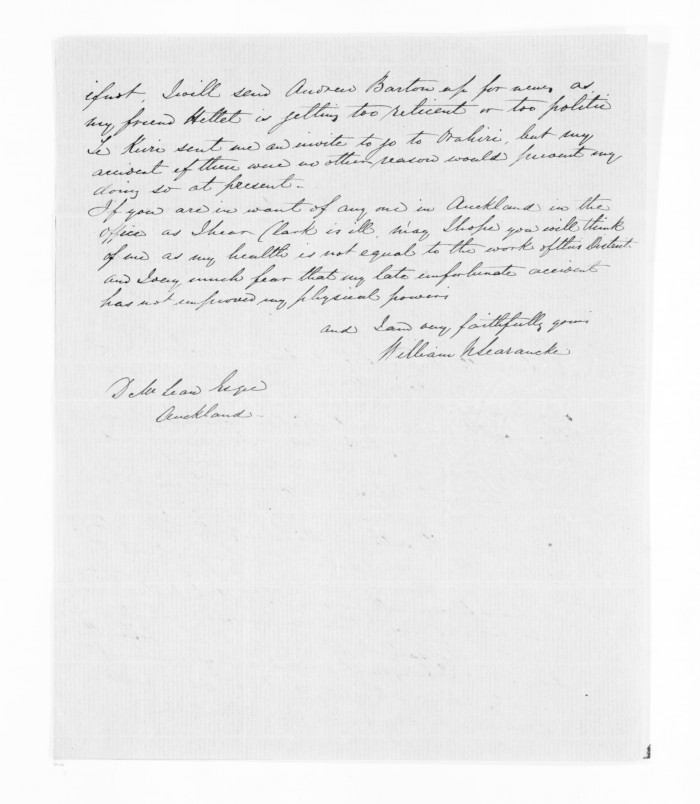 if not, I will send Andrew Barton up for news as
my friend Hettet is getting too reticent or too politic
Te Kuri sent me an invite to go to Orahiri, but my
accident if there were no other reason would prevent my
doing so at present.
If you are in want of any one in Auckland in the
Office as I hear Clark is ill, may I hope you will think
of me as my health is not equal to the work of this District
and I very much fear that my late unfortunate accident
has not improved my physical powers
and I am very faithfully yours
William N Searancke
D McLean Esqre
Auckland